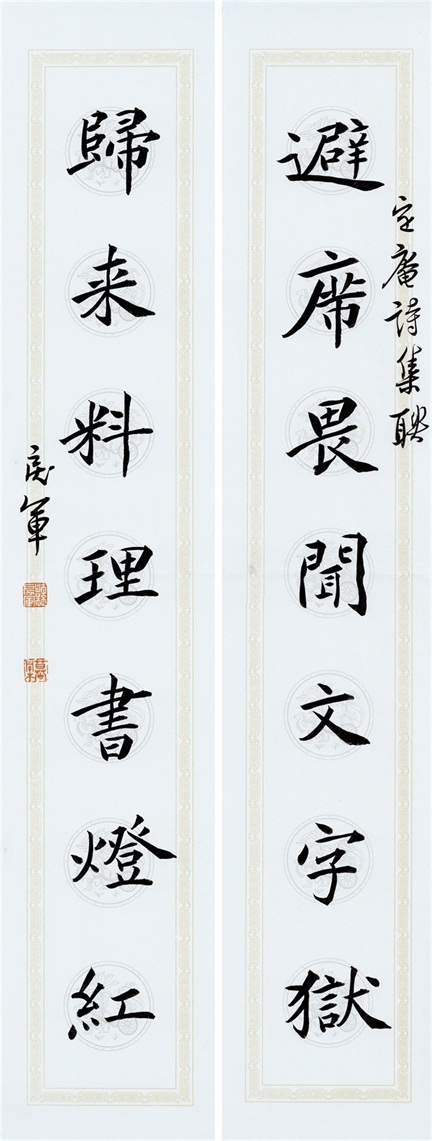 定庵詩集聯
避席畏聞文字獄
歸来料理書燈紅